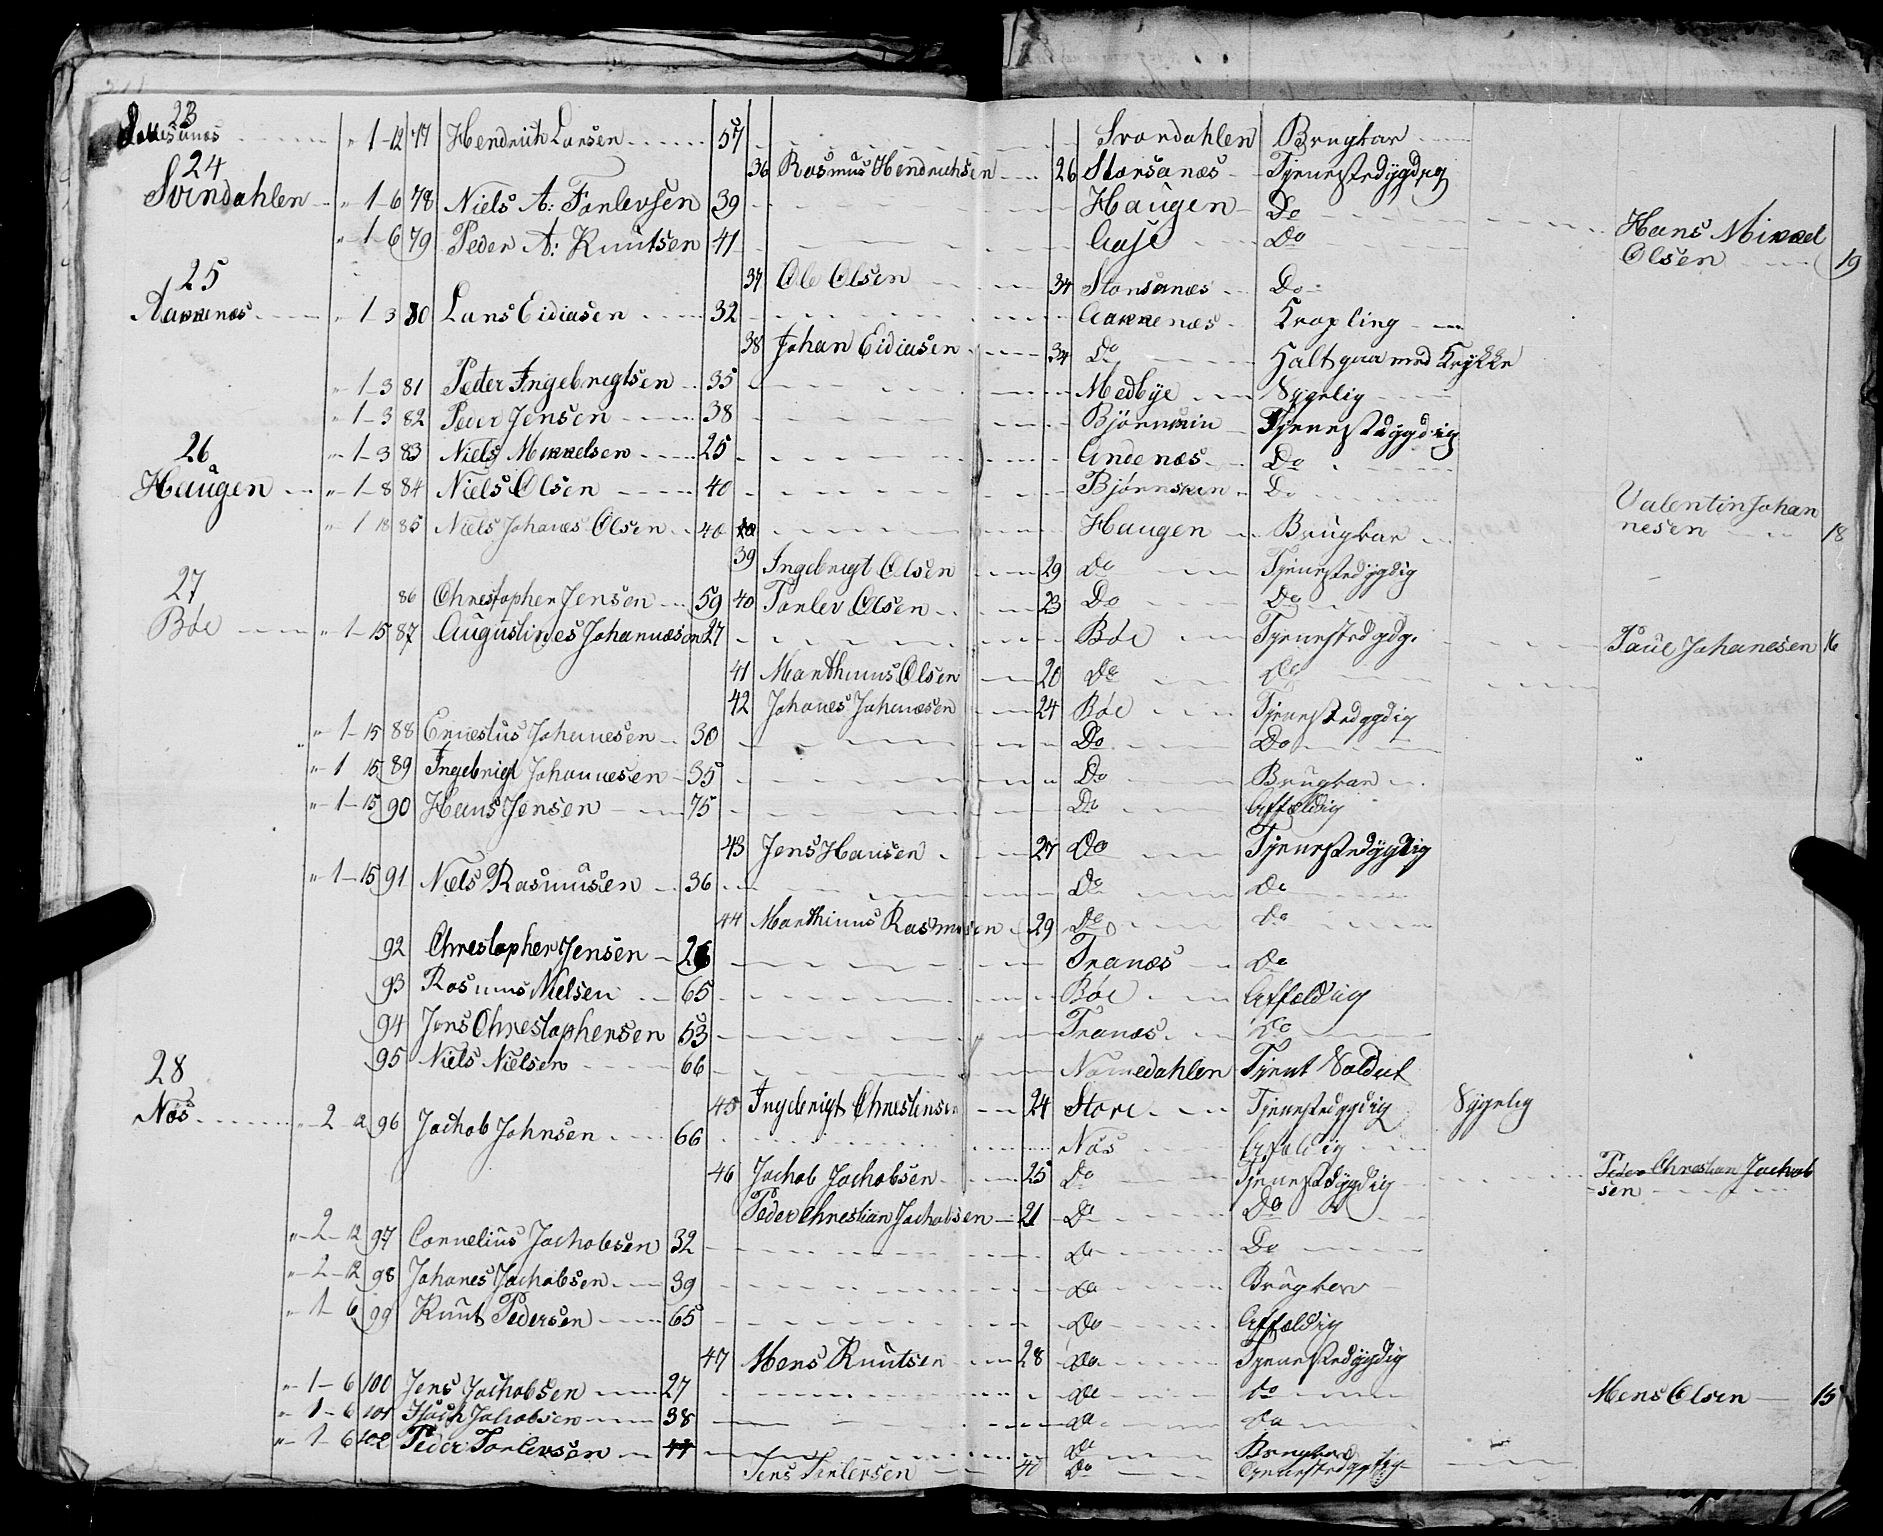 23
1-12 77 Hendrich Larsen 57 Svordahlen Brugbar
24
36 Rasmus Hendrichsen 26 Storsanæs Tjenestedygdig
Svindahlen 1-6 78 Niels A: Tarlevsen 39 Haugen Do
1-6 79 Peder A: Knutsen 41 Aase Do Hans Mikael
Olsen 19
25
37 Ole Olsen 34 Storsanæs Do
Aarnenæs 1-3 80 Lars Eidiasen 32 Krøpling
38 Johan Eidiasen 34 Do Haltgaar med Krykke
1-3 81 Peter Ingebrigtsen 35 Medbye Sygelig
1-3 82 Peder Jensen 38 Tjenestedygdig
26
1-3 83 Niels Mikkelsen 25 Andenæs Do
Haugen 1-8 84 Niels Olsen 40 Do
Valentin Johan
1 18 85 Niels Johanes Olsen 40 Haugen Brugbar nesen 18
39 Ingebrigt Olsen 29 Do Tjenestedygdig
27
86 Christopher Jensen 59 40 Tarlev Olsen 23 Do Do
Bøe 1-15 87 Augustines Johannæsen 27 Bøe Tjenestedygdg. Paul Johanesen 16
41 Marthinus Olsen 20 Do Do
42 Johanes Johanæsen 24 Bøe Tjenestedygdig
1-15 88 Ernestus Johannesen 30 Do Do
1 15 89 Ingebrigt Johannesen 35 Do Brugbar
1-15 90 Hans Jensen 75 Do Affældig
43 Jens Hansen 27 Do Tjenestedygdig
1-15 91 Niels Rasmusen 36 Do Do
44 Marthinus Rasmusen 29 Do Do
92 Christopher Jensen Tranæs Do
93 Rasmus Nielsen 65 Bøe Affældig
94 Jens Chrestophersen 53 Tranæs Do
95 Niels Nielsen 66 Tjent Soldat
28
45 Ingebrigt Chrestensen 24 Store Tjenestedygdig Sygelig
Nøs 2 12 96 Jachob Johnsen 66 Nøs Affældig
46 Jachob Jachobsen 25 Do Tjenestedygdig Peder Chrestian Jachob
sen
Peder Chrestian Jachobsen 21 Do Do
2-12 97 Cornelius Jachobsen 32 Do Do
2-12 98 Johanes Jachobsen 39 Do Brugbar
1-6 99 Knut Pedersen 65 Do Affældig
47 Mens Knutsen 28 Do Tjenestedygdig
1-6 100 Jens Jachobsen 27 Do Do Mens Olsen 15
1-6 101 Isach Jachobsen 38 Do Do
1-6 102 Peder Tarlevsen 44 Do Brugbar
Jens Tarlevsen 40 Do Tjenestedygdig